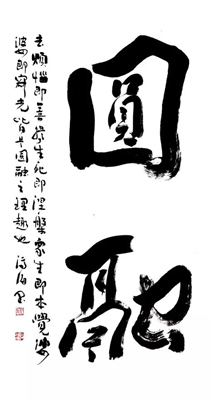 圓融
煩惱即菩提生死即涅槃眾生即本覺娑
婆即寂光皆圓融之理趣也